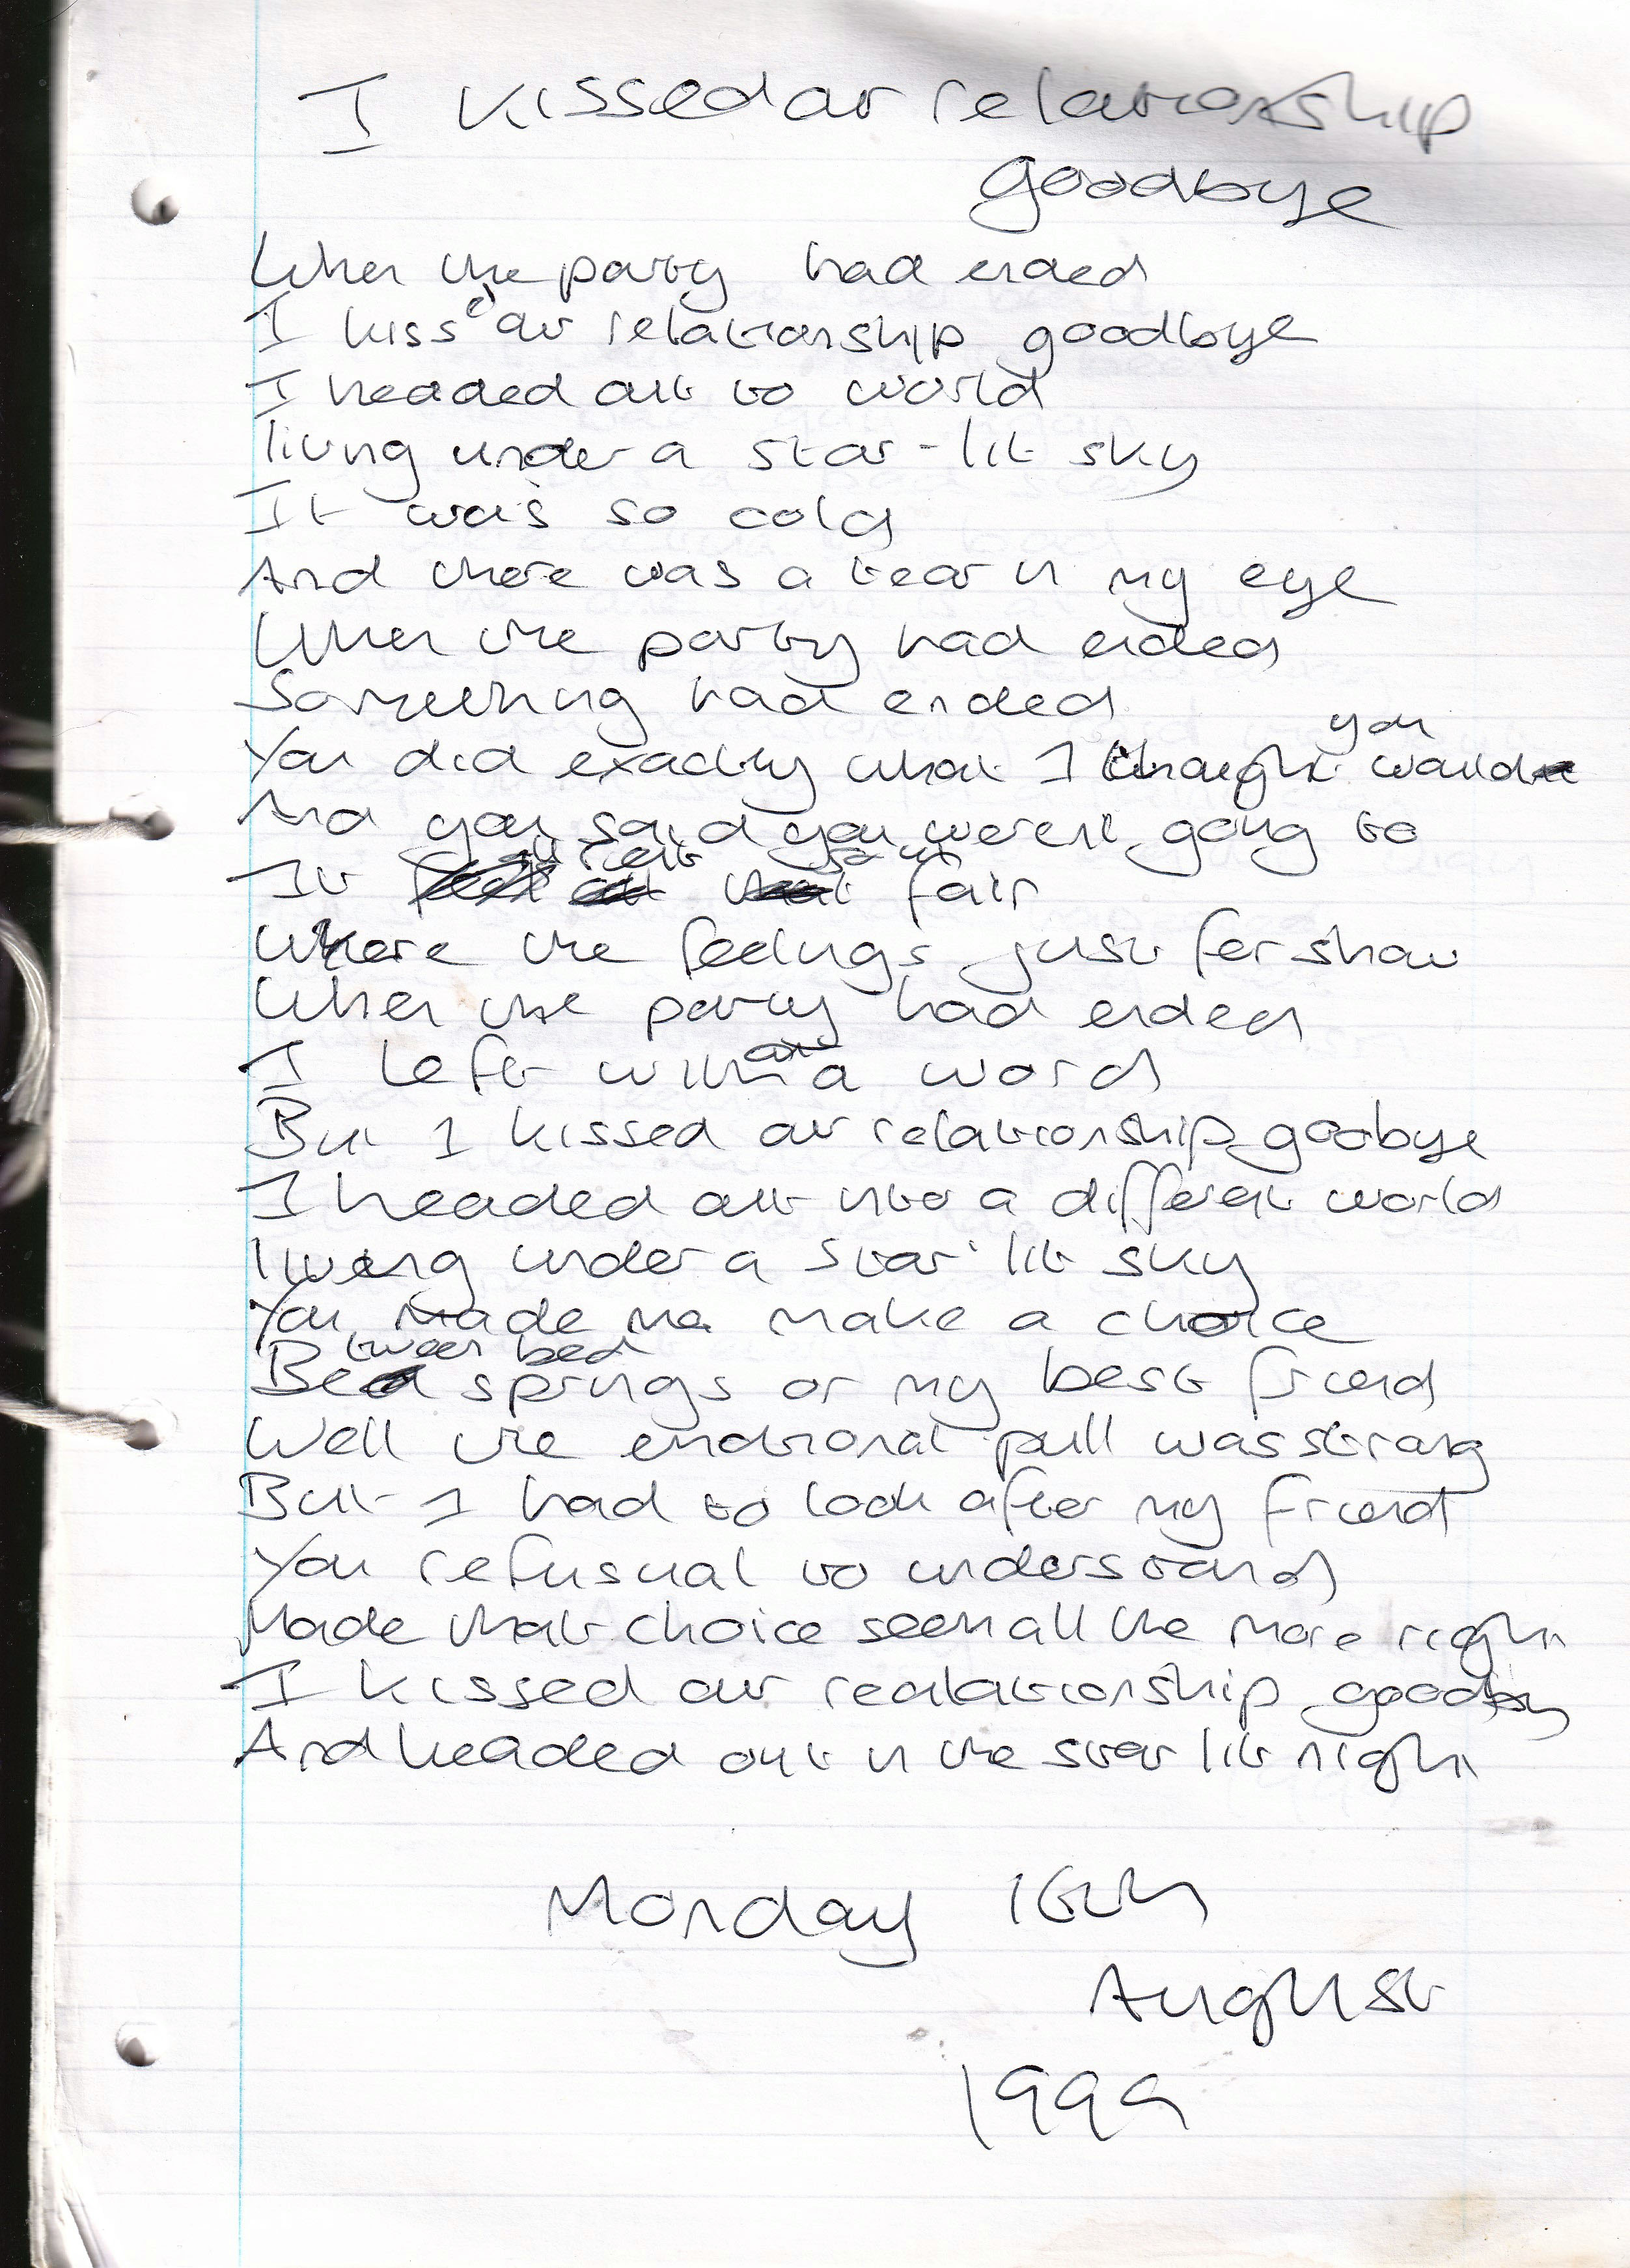 I kissed our relationship
goodbye
When the party had ended
I kissed our relationship goodbye
I headed out to world
living under a star-lit sky
It was so cold
And there was a tear in my eye
When the party had ended
Something had ended
You did exactly what I thought you would
And you said you weren't going to
It all felt so un fair
Where the feelings just for show
When the party had ended
I left without a word
But I kissed our relationship goodbye
I headed out into a different world
living under a star lit sky
You made me make a choice
Between bed springs or my best friend
Well the emotional pull was strong
But I had to look after my friend
You refusual to understand
Made that choice seem all the more right
I kissed our realationship goodby
And headed out in the star lit night
Monday 16th
August
1999